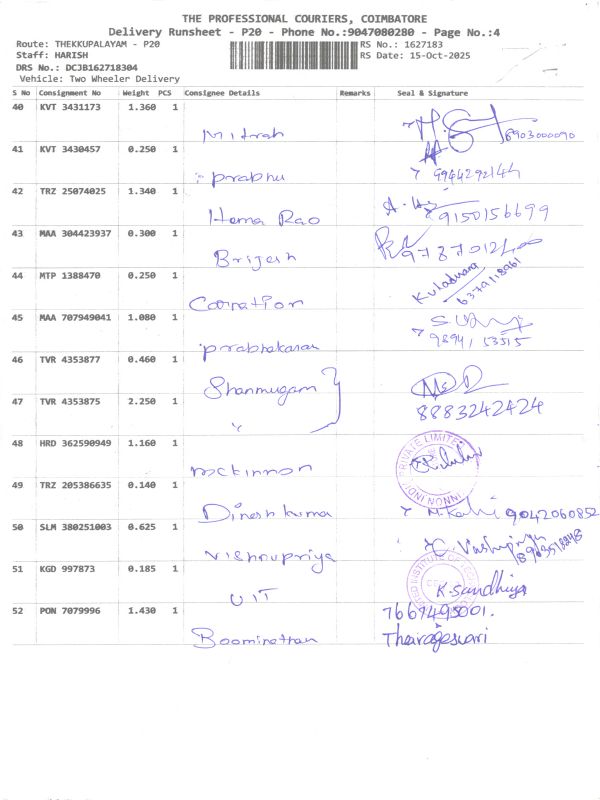 THE PROFESSIONAL COURIERS, COIMBATORE
Delivery Runsheet - P20 - Phone No.:9047080280 - Page No.:4
Route: THEKKUPALAYAM - P20 RS No.: 1627183
Staff: HARISH RS Date: 15-Oct-2025
DRS No.: DCJB162718304
Vehicle: Two Wheeler Delivery
S No Consignment No Weight PCS Consignee Details Remarks Seal & Signature
40 KVT 3431173 1.360 1
Mitrah 8903000090
41 KVT 3430457 0.250 1
prabhu 9944292144
42 TRZ 25074025 1.340 1
Hema Rao 9150156699
43 MAA 304423937 0.300 1
Brijesh
44 MTP 1388470 0.250 1
6379118961
45 MAA 707949041 1.080 1
prabhakaran 9894153515
46 TVR 4353877 0.460 1
Shanmugam
47 TVR 4353875 2.250 1
" 8883242424
48 HRD 362590949 1.160 1
PRIVATE LIMITED
mckinnon
49 TRZ 205386635 0.140 1
Dinesh kuma 9042060852
50 SLM 380251003 0.625 1
Vishnupriya
51 KGD 997873 0.185 1
UIT K. Sandhiya
52 PON 7079996 1.430 1
7667495001.
Boominathan Tharageswari